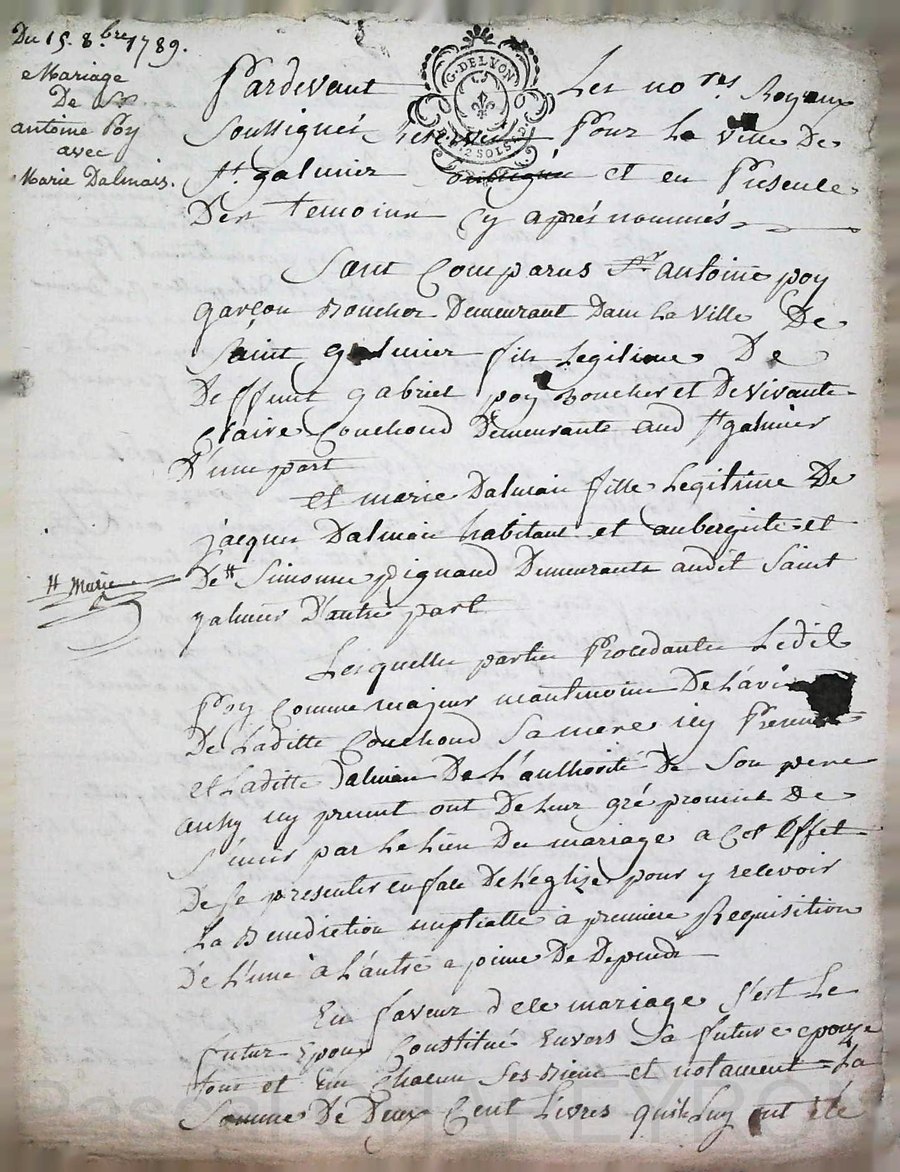 Du 15. 8.bre 1789.
Mariage
De Sr
antoine Poy
avec
Marie Dalmais.
G. DE LYON
2 SOLS
Pardevant Les no.res Royaux
Soussignés Pour La ville De
St. galmier et en Presence
Des temoins Cy aprés nommés
Sont Comparus Sr. antoine poy
garçon Boucher Demeurant Dans La Ville De
Saint galmier fils Legitime De
Deffunt gabriel poy Boucher et De Vivante
Claire Couchoud Demeurante aud St galmier
D'une part
et marie Dalmais fille Legitime De
jacques Dalmais habitant et aubergiste et
De H Simonne pignaud Demeurante audit Saint
galmier D'autre part
H Marie
Lesquelles parties Procedantes Ledit
Poy Comme majeur De L'avis
De Laditte Couchoud Sa mere icy Presente
et Laditte Dalmais De L'authorité De Son pere
aussy icy present ont De Leur gré promis De
S'unir par Le Lien Du mariage a Cet Effet
De se presenter en face De L'eglize pour y recevoir
La Benediction nuptialle à premiere Requisition
De L'une à L'autre a peine De Depends
En faveur dece mariage S'est Le
futur Epoux Constitué Envers Sa future epouse
tous et Un Chacun Ses Biens et notament La
Somme De Deux Cent Livres quils Luy ont été
Pascal CHAREYRON